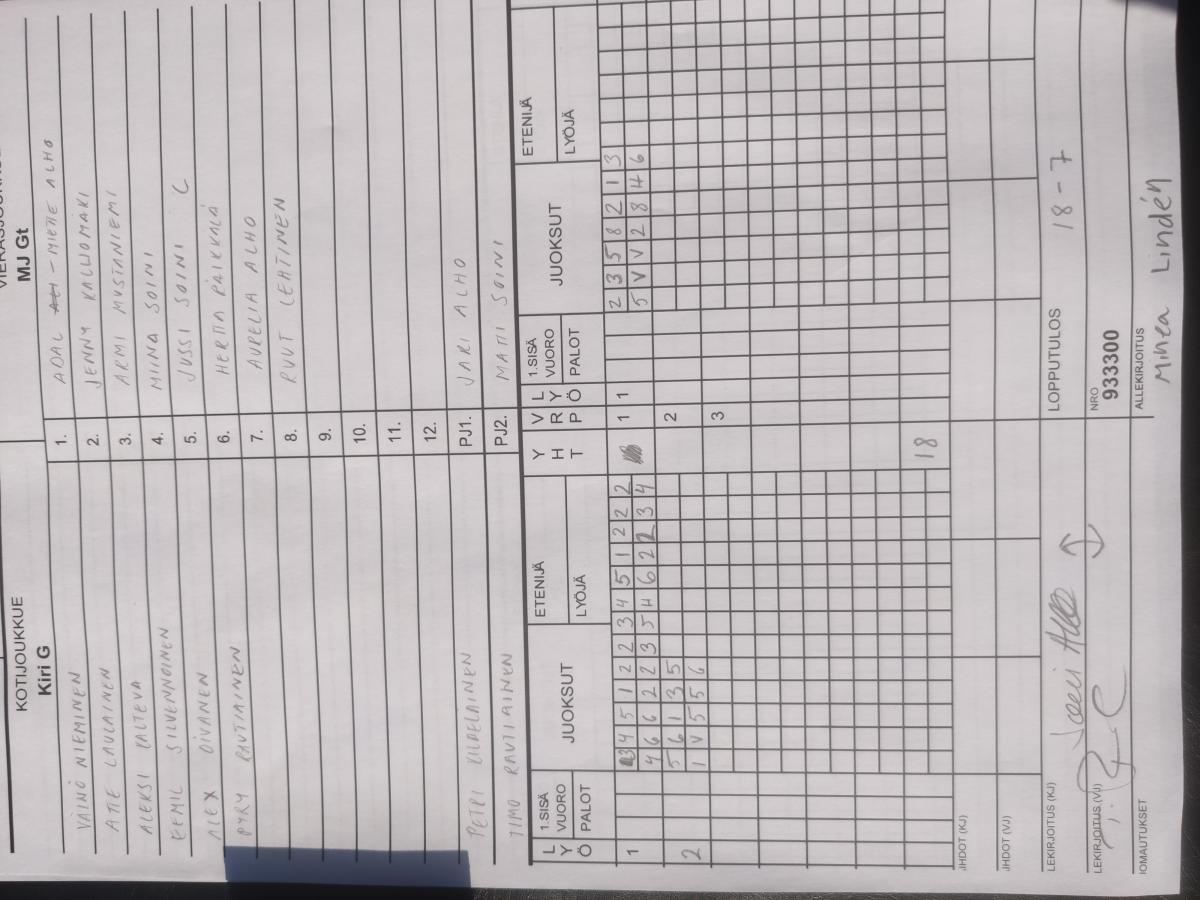 KOTIJOUKKUE
Kiri G
MJ Gt
1. VÄINÖ NIEMINEN
2. ATTE LAUKAINEN
3. ALEKSI VALTEVA
4. EEMIL SILVENNOINEN
5. ALEX OIVANEN
6. PYRY RAUTIAINEN
7.
8.
9.
10.
11.
12.
PJ1. PETRI
PJ2. TIMO RAUTIAINEN
ADAL - MIETTE ALHO
JENNY KALLIOMÄKI
ARMI MUSTANIEMI
MIINA SOINI
JUSSI SOINI C
HERTTA PÄIKKÄLÄ
AURELIA ALHO
RUUT LEHTINEN
JARI ALHO
MATTI SOINI
LYÖ 1.SISÄ VUORO PALOT JUOKSUT ETENIJÄ LYÖJÄ YHT VRP LYÖ 1.SISÄ VUORO PALOT JUOKSUT ETENIJÄ LYÖJÄ
1 3 4 5 1 2 2 2 3 4 5 1 2 2 2 1 1 2 3 5 8 2 1 3
4 6 6 2 2 3 5 4 6 2 2 3 4 5 V V 2 8 4 6
2 5 6 1 3 5 2
1 V 5 5 6
3
18
LOPPUTULOS 18-7
LEKIRJOITUS (KJ) Jari Alho
NRO 933300
LEKIRJOITUS (VJ)
ALLEKIRJOITUS Minea Lindén
IOMAUTUKSET